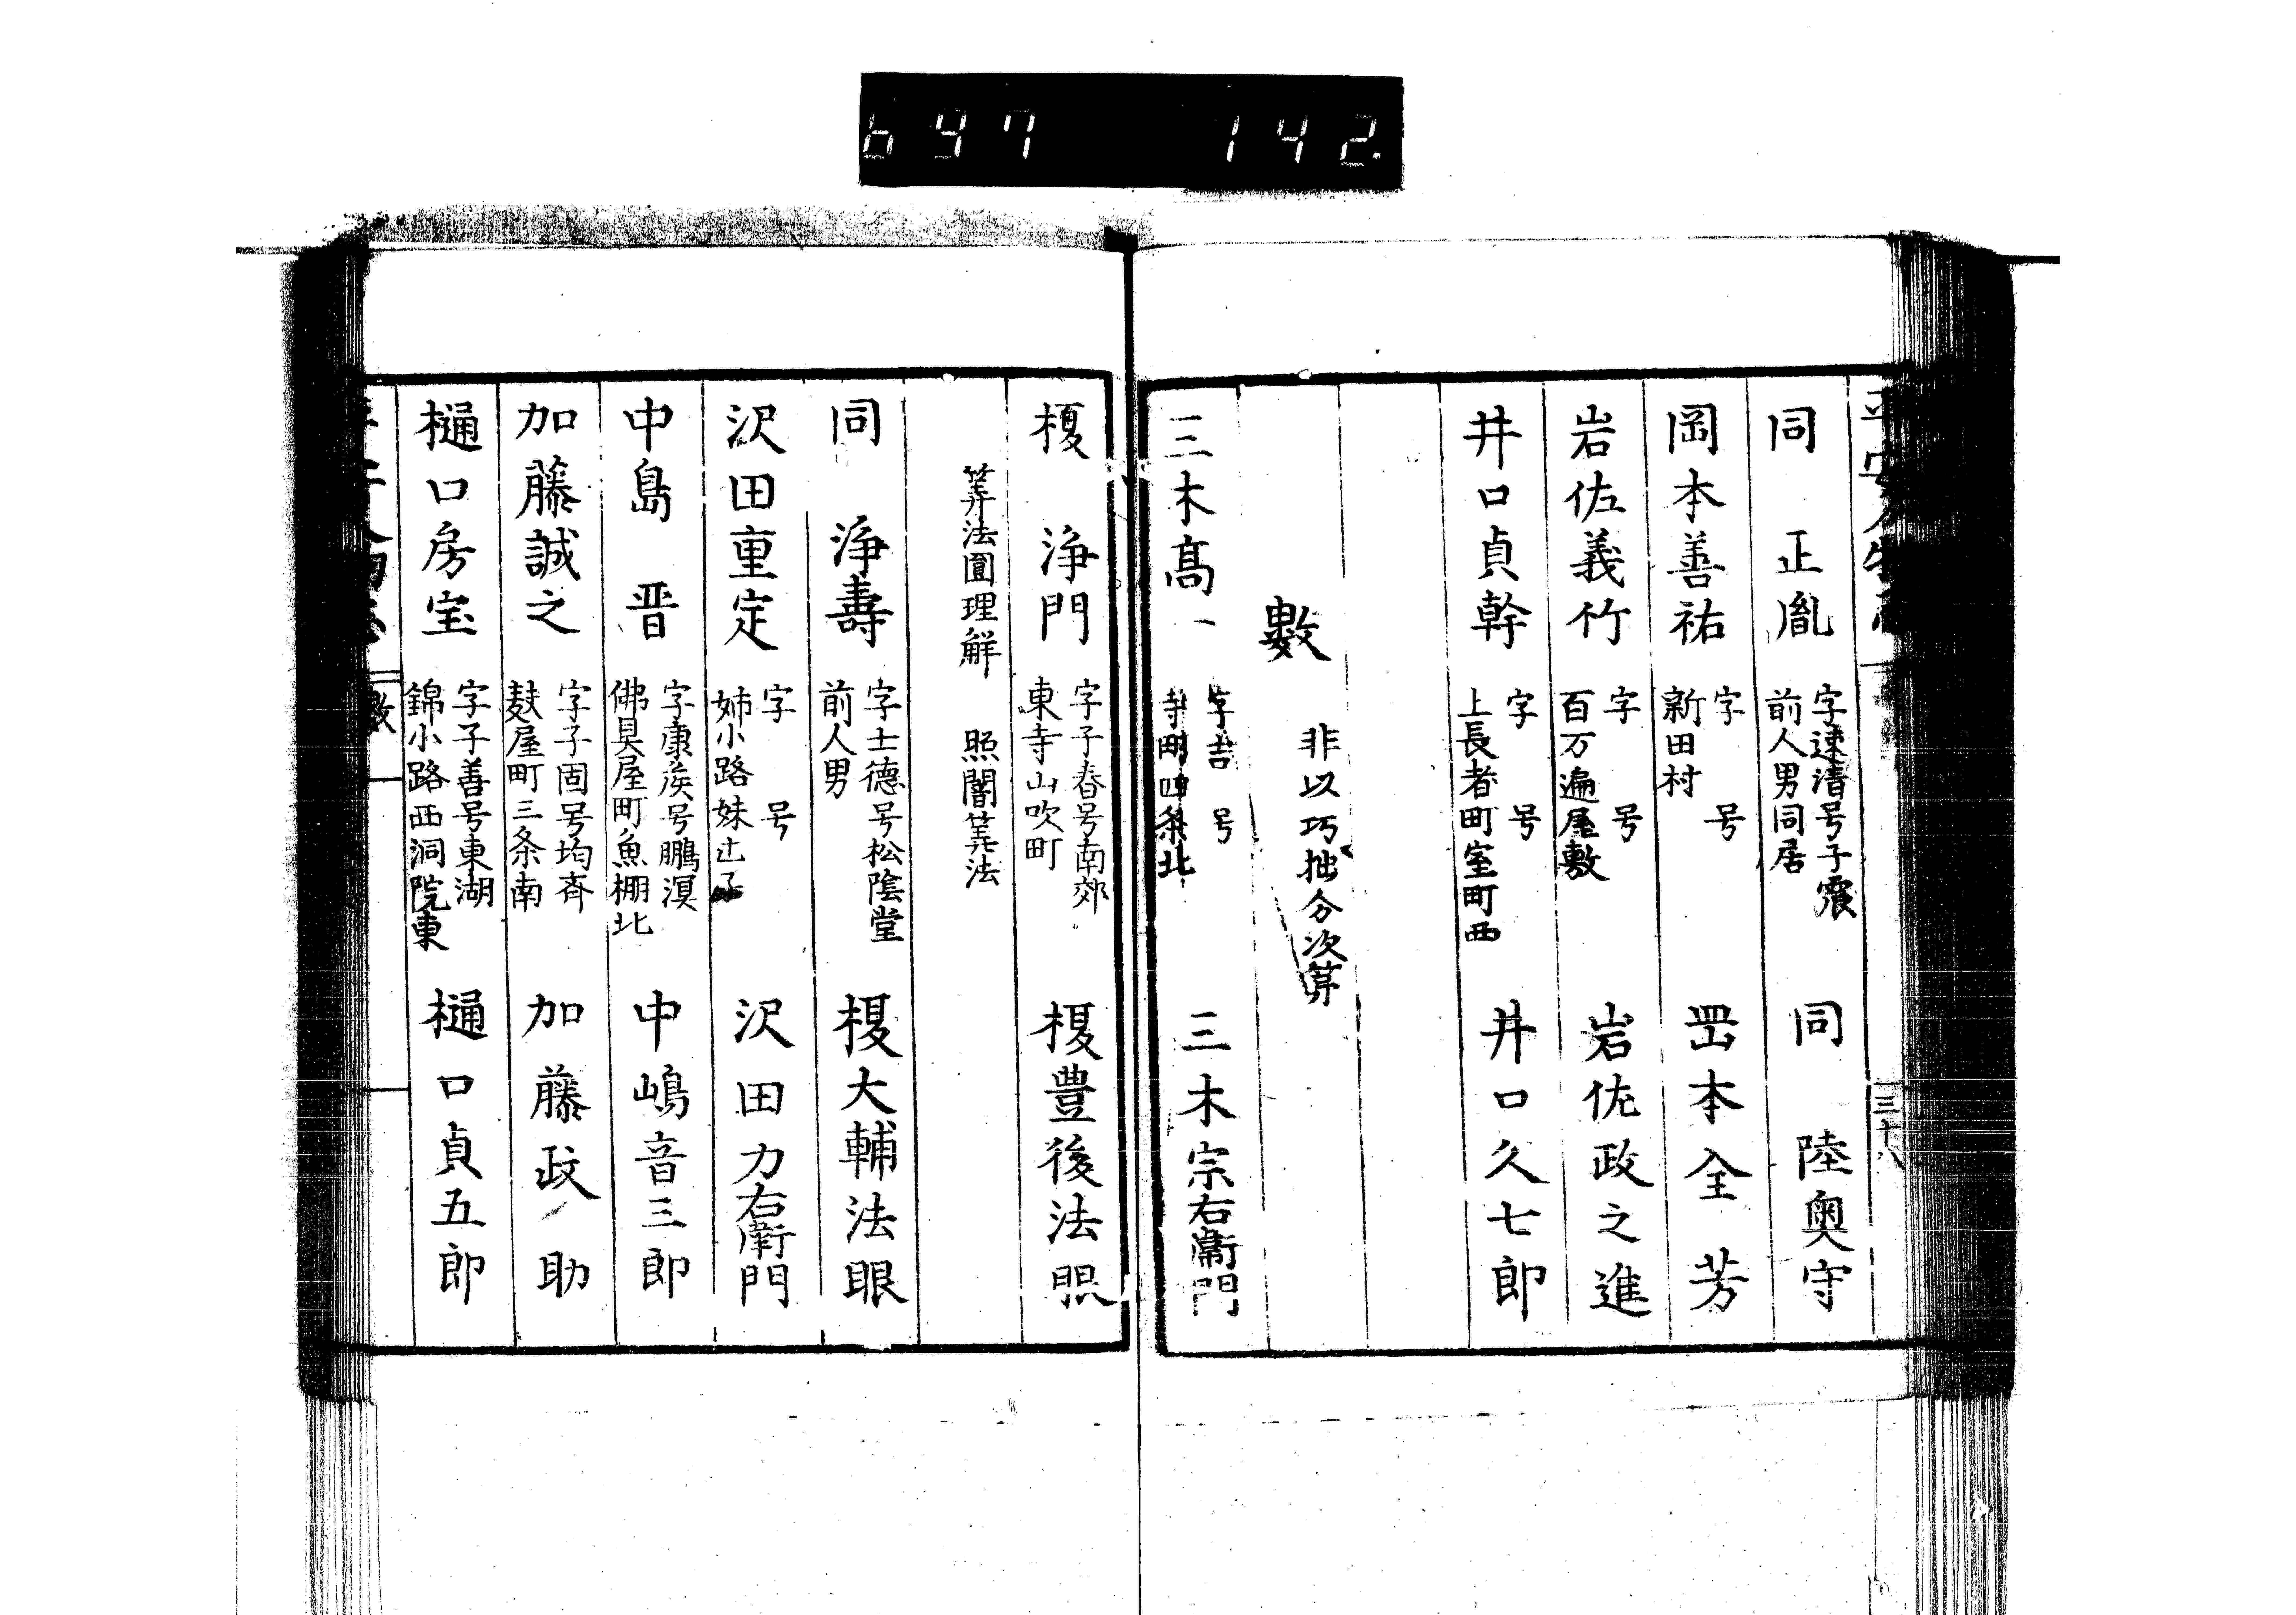 647 142
平安人物志
三十八
同 正胤 字速清号子震 前人男同居 同 陸奥守
岡本善祐 字 号 新田村 岡本全芳
岩佐義竹 字 号 百万遍屋敷 岩佐政之進
井口貞幹 字 号 上長者町室町西 井口久七郎
數 非以巧拙分次第
三木髙一 字吉 号 寺町四条北 三木宗右衛門
榎 浄門 字子春号南郊 東寺山吹町 榎豊後法眼
筭法圓理解 照闇筭法
同 浄壽 字士德号松陰堂 前人男 榎大輔法眼
沢田重定 字 号 姉小路妹辻子 沢田力右衛門
中島 晋 字康侯号鵬溟 佛具屋町魚棚北 中嶋音三郎
加藤誠之 字子固号均斉 麸屋町三条南 加藤政助
樋口房宝 字子善号東湖 錦小路西洞院東 樋口貞五郎
數